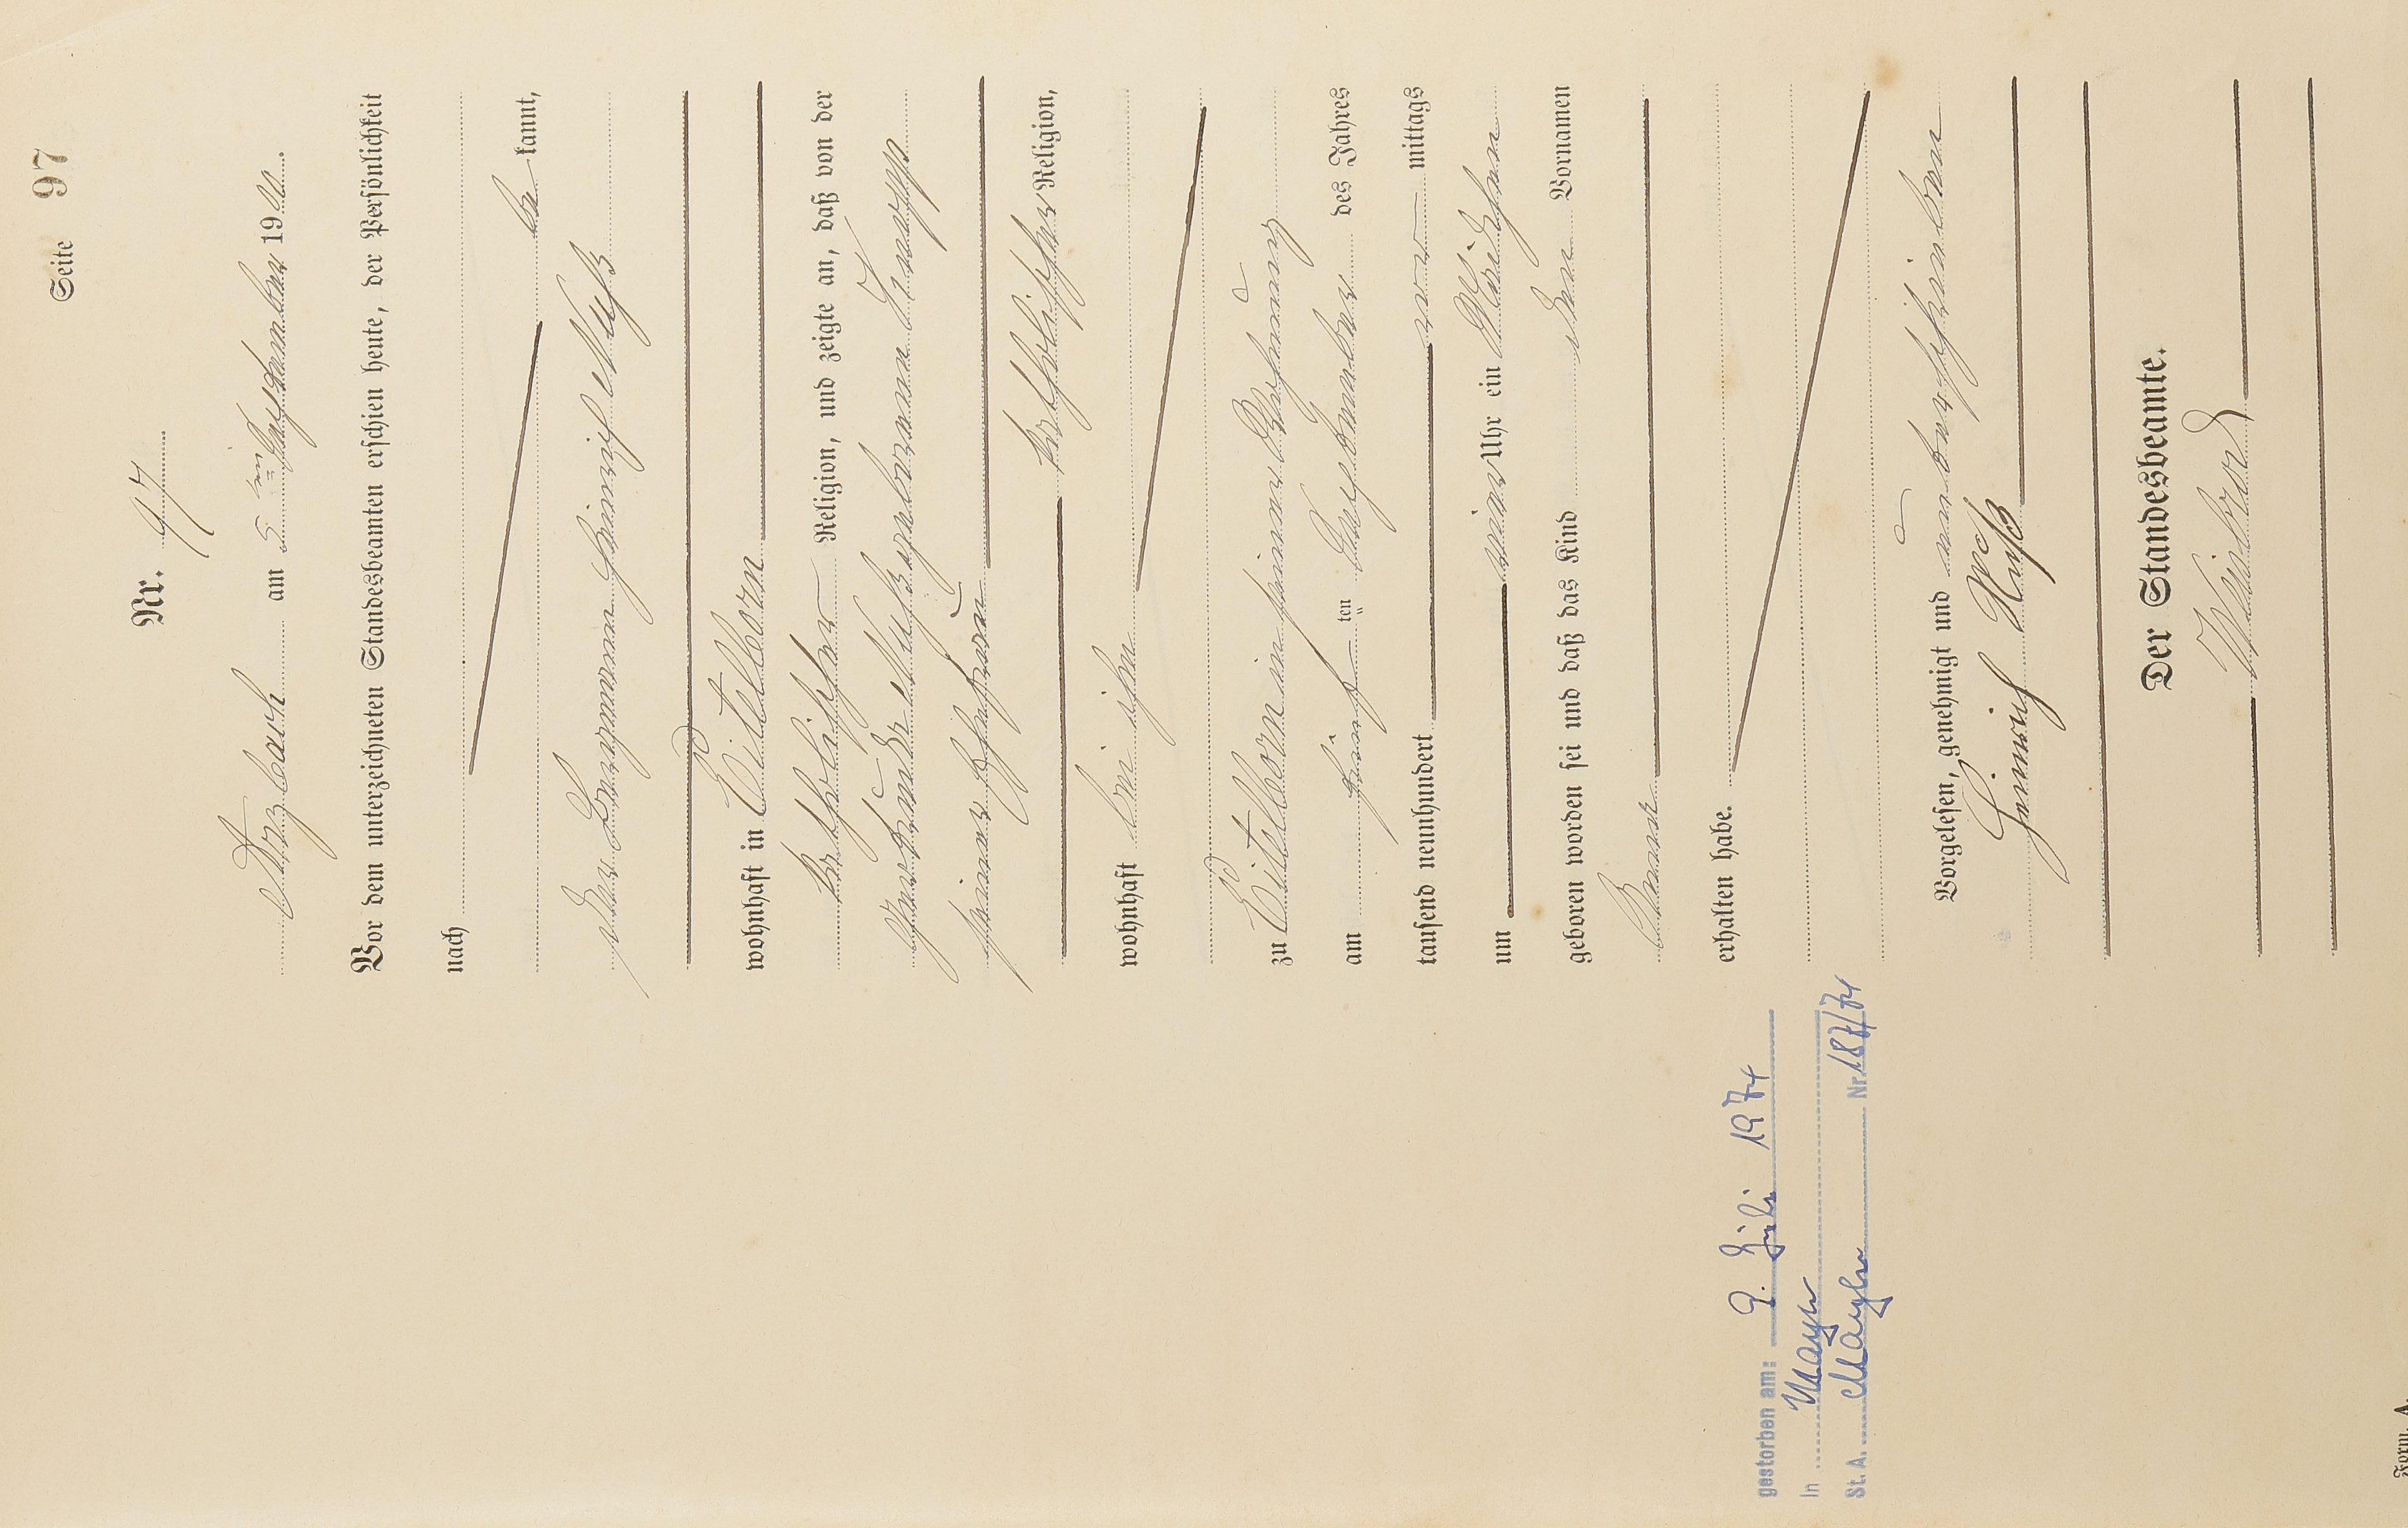 Seite 97
Nr. 97
Arzbach am 5 ten September 1900.
Vor dem unterzeichneten Standesbeamten erschien heute, der Persönlichkeit
nach
be kannt,
der Bergmann Heinrich Nuß
wohnhaft in Eitelborn
katholischer Religion, und zeigte an, daß von der
Nuß geborenen Knopp
seiner Ehefrau
katholischer Religion,
wohnhaft bei ihm
zu Eitelborn in seiner Wohnung
am fünf ten September des Jahres
tausend neunhundert vor mittags
um Uhr ein Mädchen
geboren worden sei und daß das Kind den Vornamen
Anna
erhalten habe.
Vorgelesen, genehmigt und unterschrieben
Heinrich Nuß
Der Standesbeamte.
gestorben am: 9. Juli 1974
in Mayen
St. A. Mayen Nr. 187/74
Form. A.